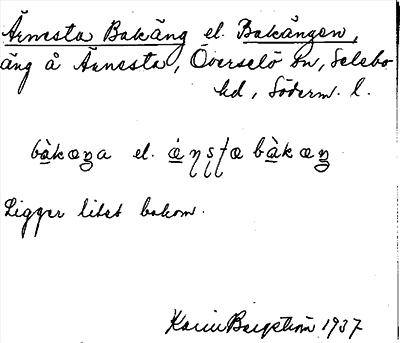 Ärnesta Bakäng el. Bakängen,
äng å Ärnesta, Överselö sn, Selebo
hd, Söderm. l.
bàkæŋa el. æ̀ṇṣṭa bàkæŋ
Ligger litet bakom.
Karin Bergström 1937